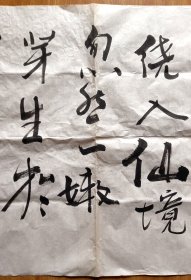 绕入仙境
忽然一嫩
芽生於